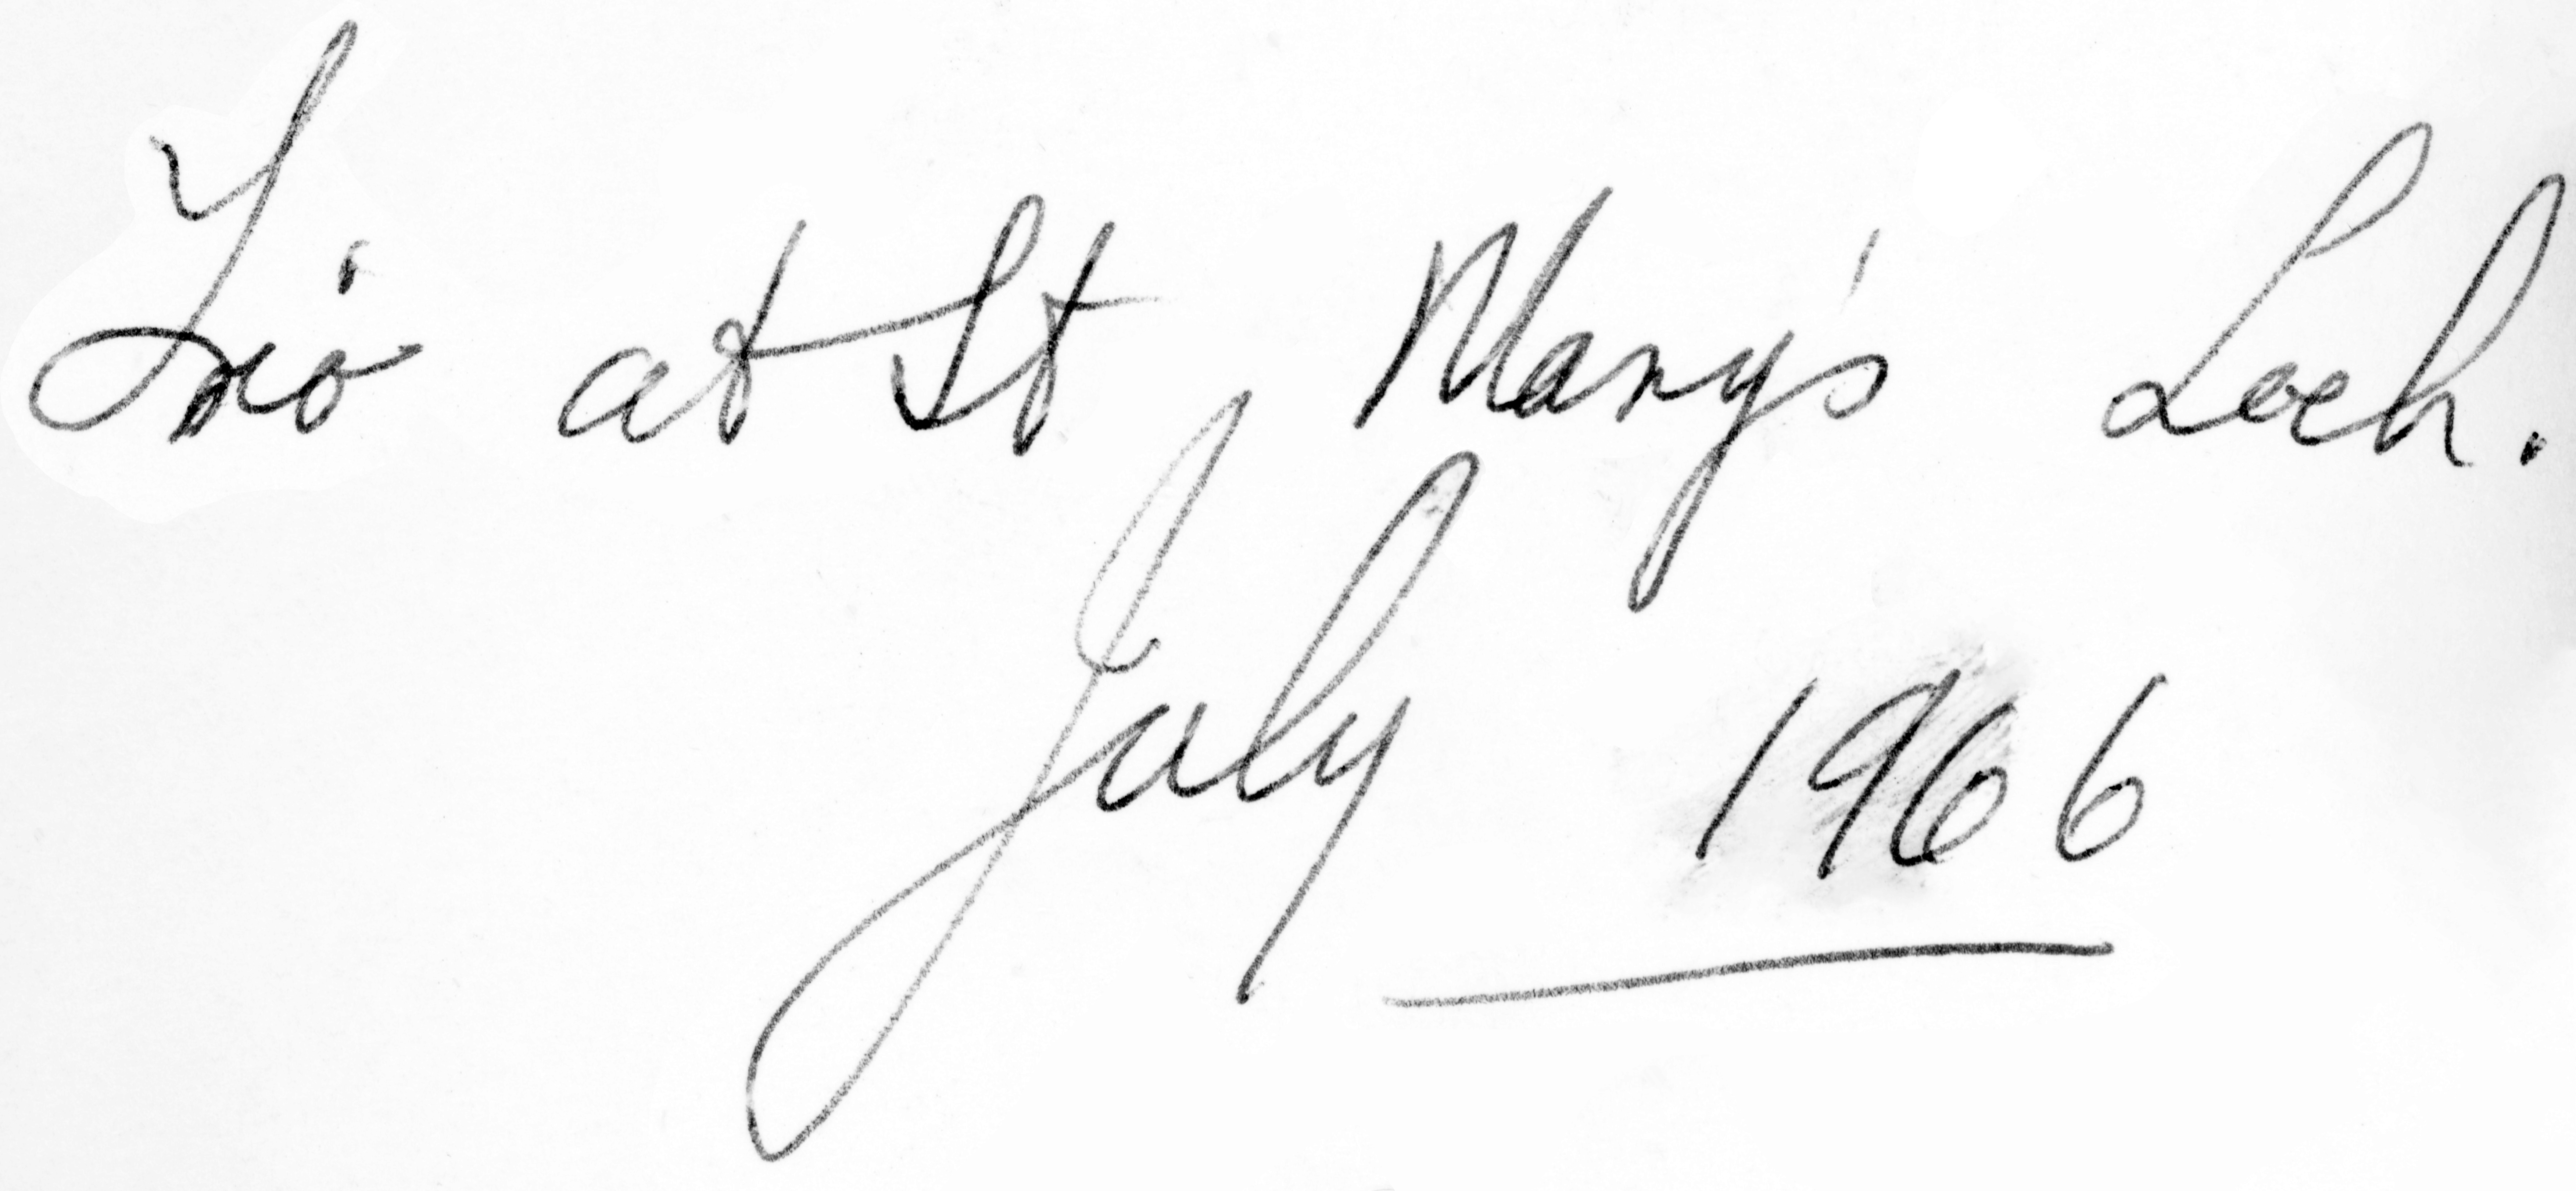 Trio at St Mary's Loch.
July 1966